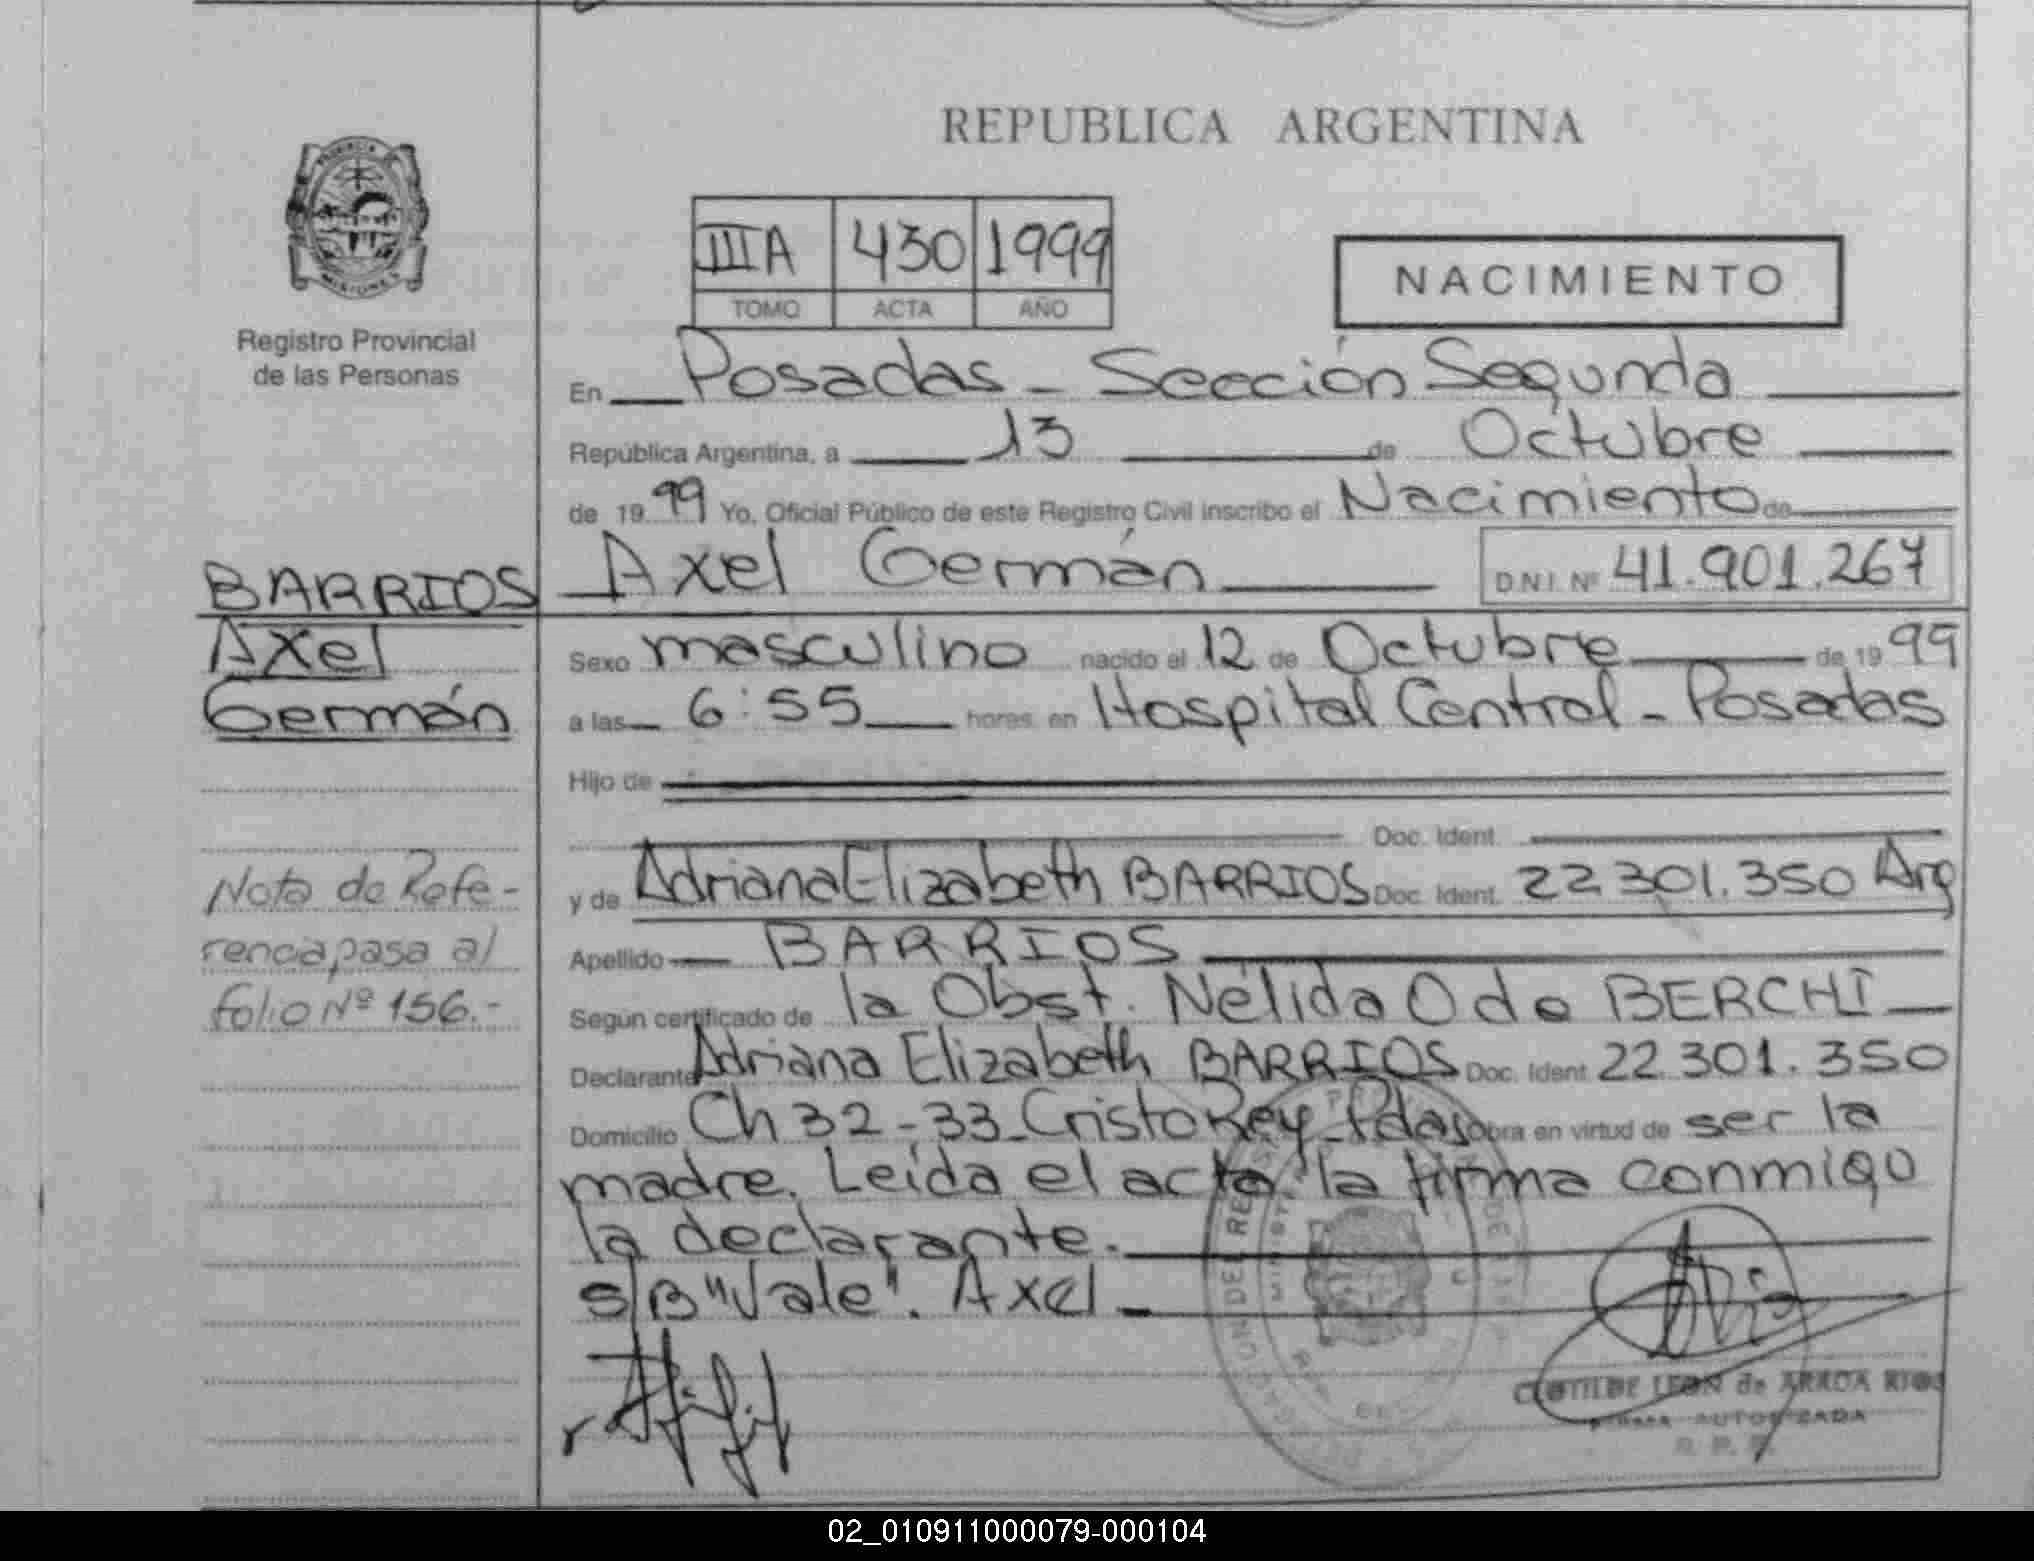 REPUBLICA ARGENTINA
PROVINCIA DE
MISIONES
Registro Provincial
de las Personas
IIIA 430 1999
TOMO ACTA AÑO
NACIMIENTO
En Posadas - Sección Segunda
República Argentina, a 13 de Octubre
de 1999 Yo, Oficial Público de este Registro Civil inscribo el Nacimiento de
BARRIOS
Axel
Germán
Axel Germán D.N.I. Nº 41.901.267
Sexo masculino nacido el 12 de Octubre de 1999
a las 6:55 horas en Hospital Central - Posadas
Hijo de
Doc. Ident.
y de Adriana Elizabeth BARRIOS Doc. Ident. 22.301.350 Arg
Apellido BARRIOS
Según certificado de la Obst. Nélida O de BERCHI
Declarante Adriana Elizabeth BARRIOS Doc. Ident. 22.301.350
Domicilio Ch 32-33 Cristo Rey - Pdas obra en virtud de ser la
madre. Leída el acta, la firma conmigo
la declarante.
s/B "Vale". Axel
Nota de Refe-
rencia pasa al
folio Nº 156.-
CLOTILDE LEON de ARROA RIOS
FIRMA AUTORIZADA
02_010911000079-000104